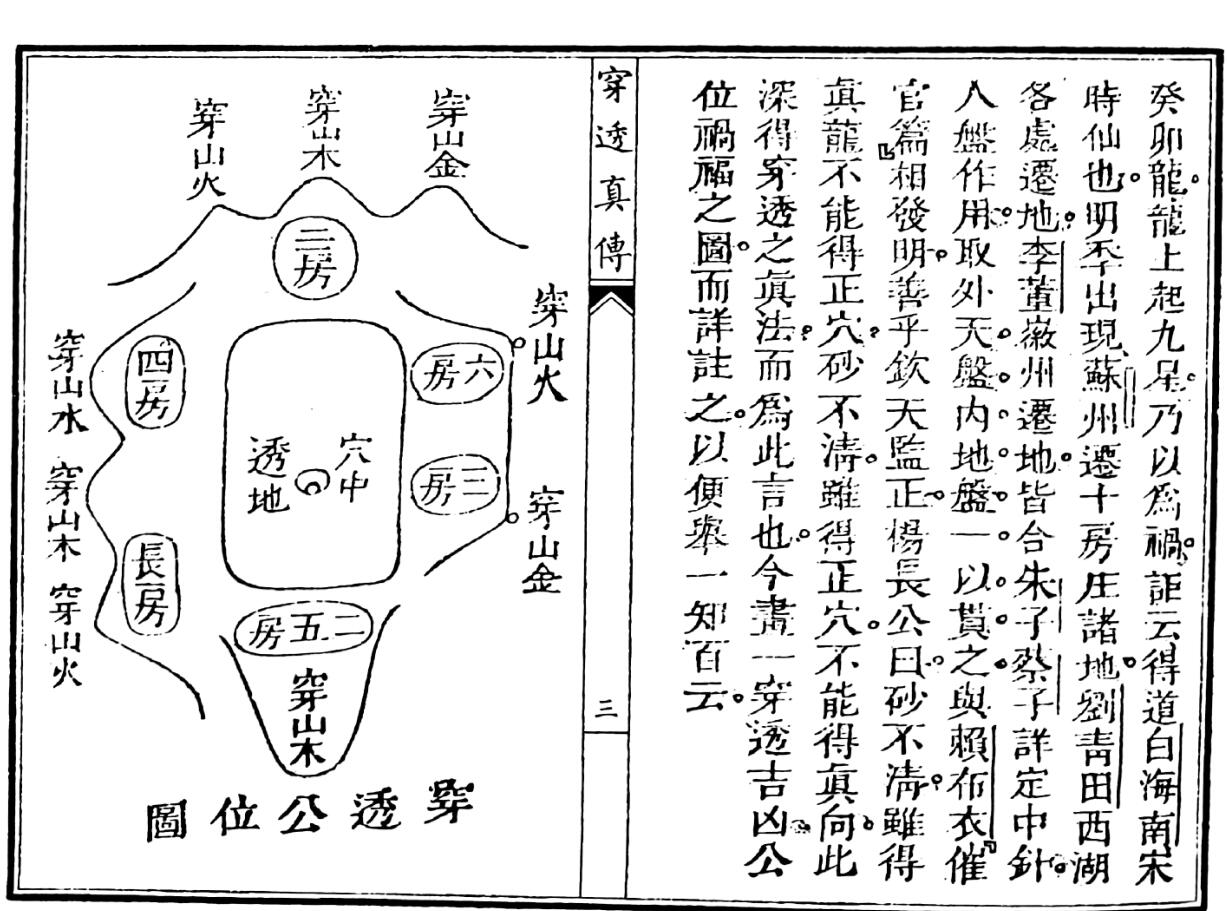 癸卯龍。龍上起九星。乃以爲禍。詎云得道白海南宋
時仙也。明季出現蘇州遷十房庄諸地。劉青田西湖
各處遷地。李董徽州遷地。皆合朱子蔡子詳定中針。
人盤作用。取外天盤。内地盤。一以貫之。與賴布衣催
官篇』相發明。善乎欽天監正。楊長公曰。砂不清。雖得
眞龍不能得正穴。砂不清。雖得正穴。不能得眞向。此
深得穿透之眞法。而爲此言也。今畫一穿透吉凶公
位禍福之圖。而詳註之。以便舉一知百云。
穿透真傳
三
穿山金
穿山木
穿山火
三房
穿山火
六房
四房
穿山水
穴中
透地
三房
穿山木
穿山金
長房
穿山火
二五房
穿山木
穿透公位圖